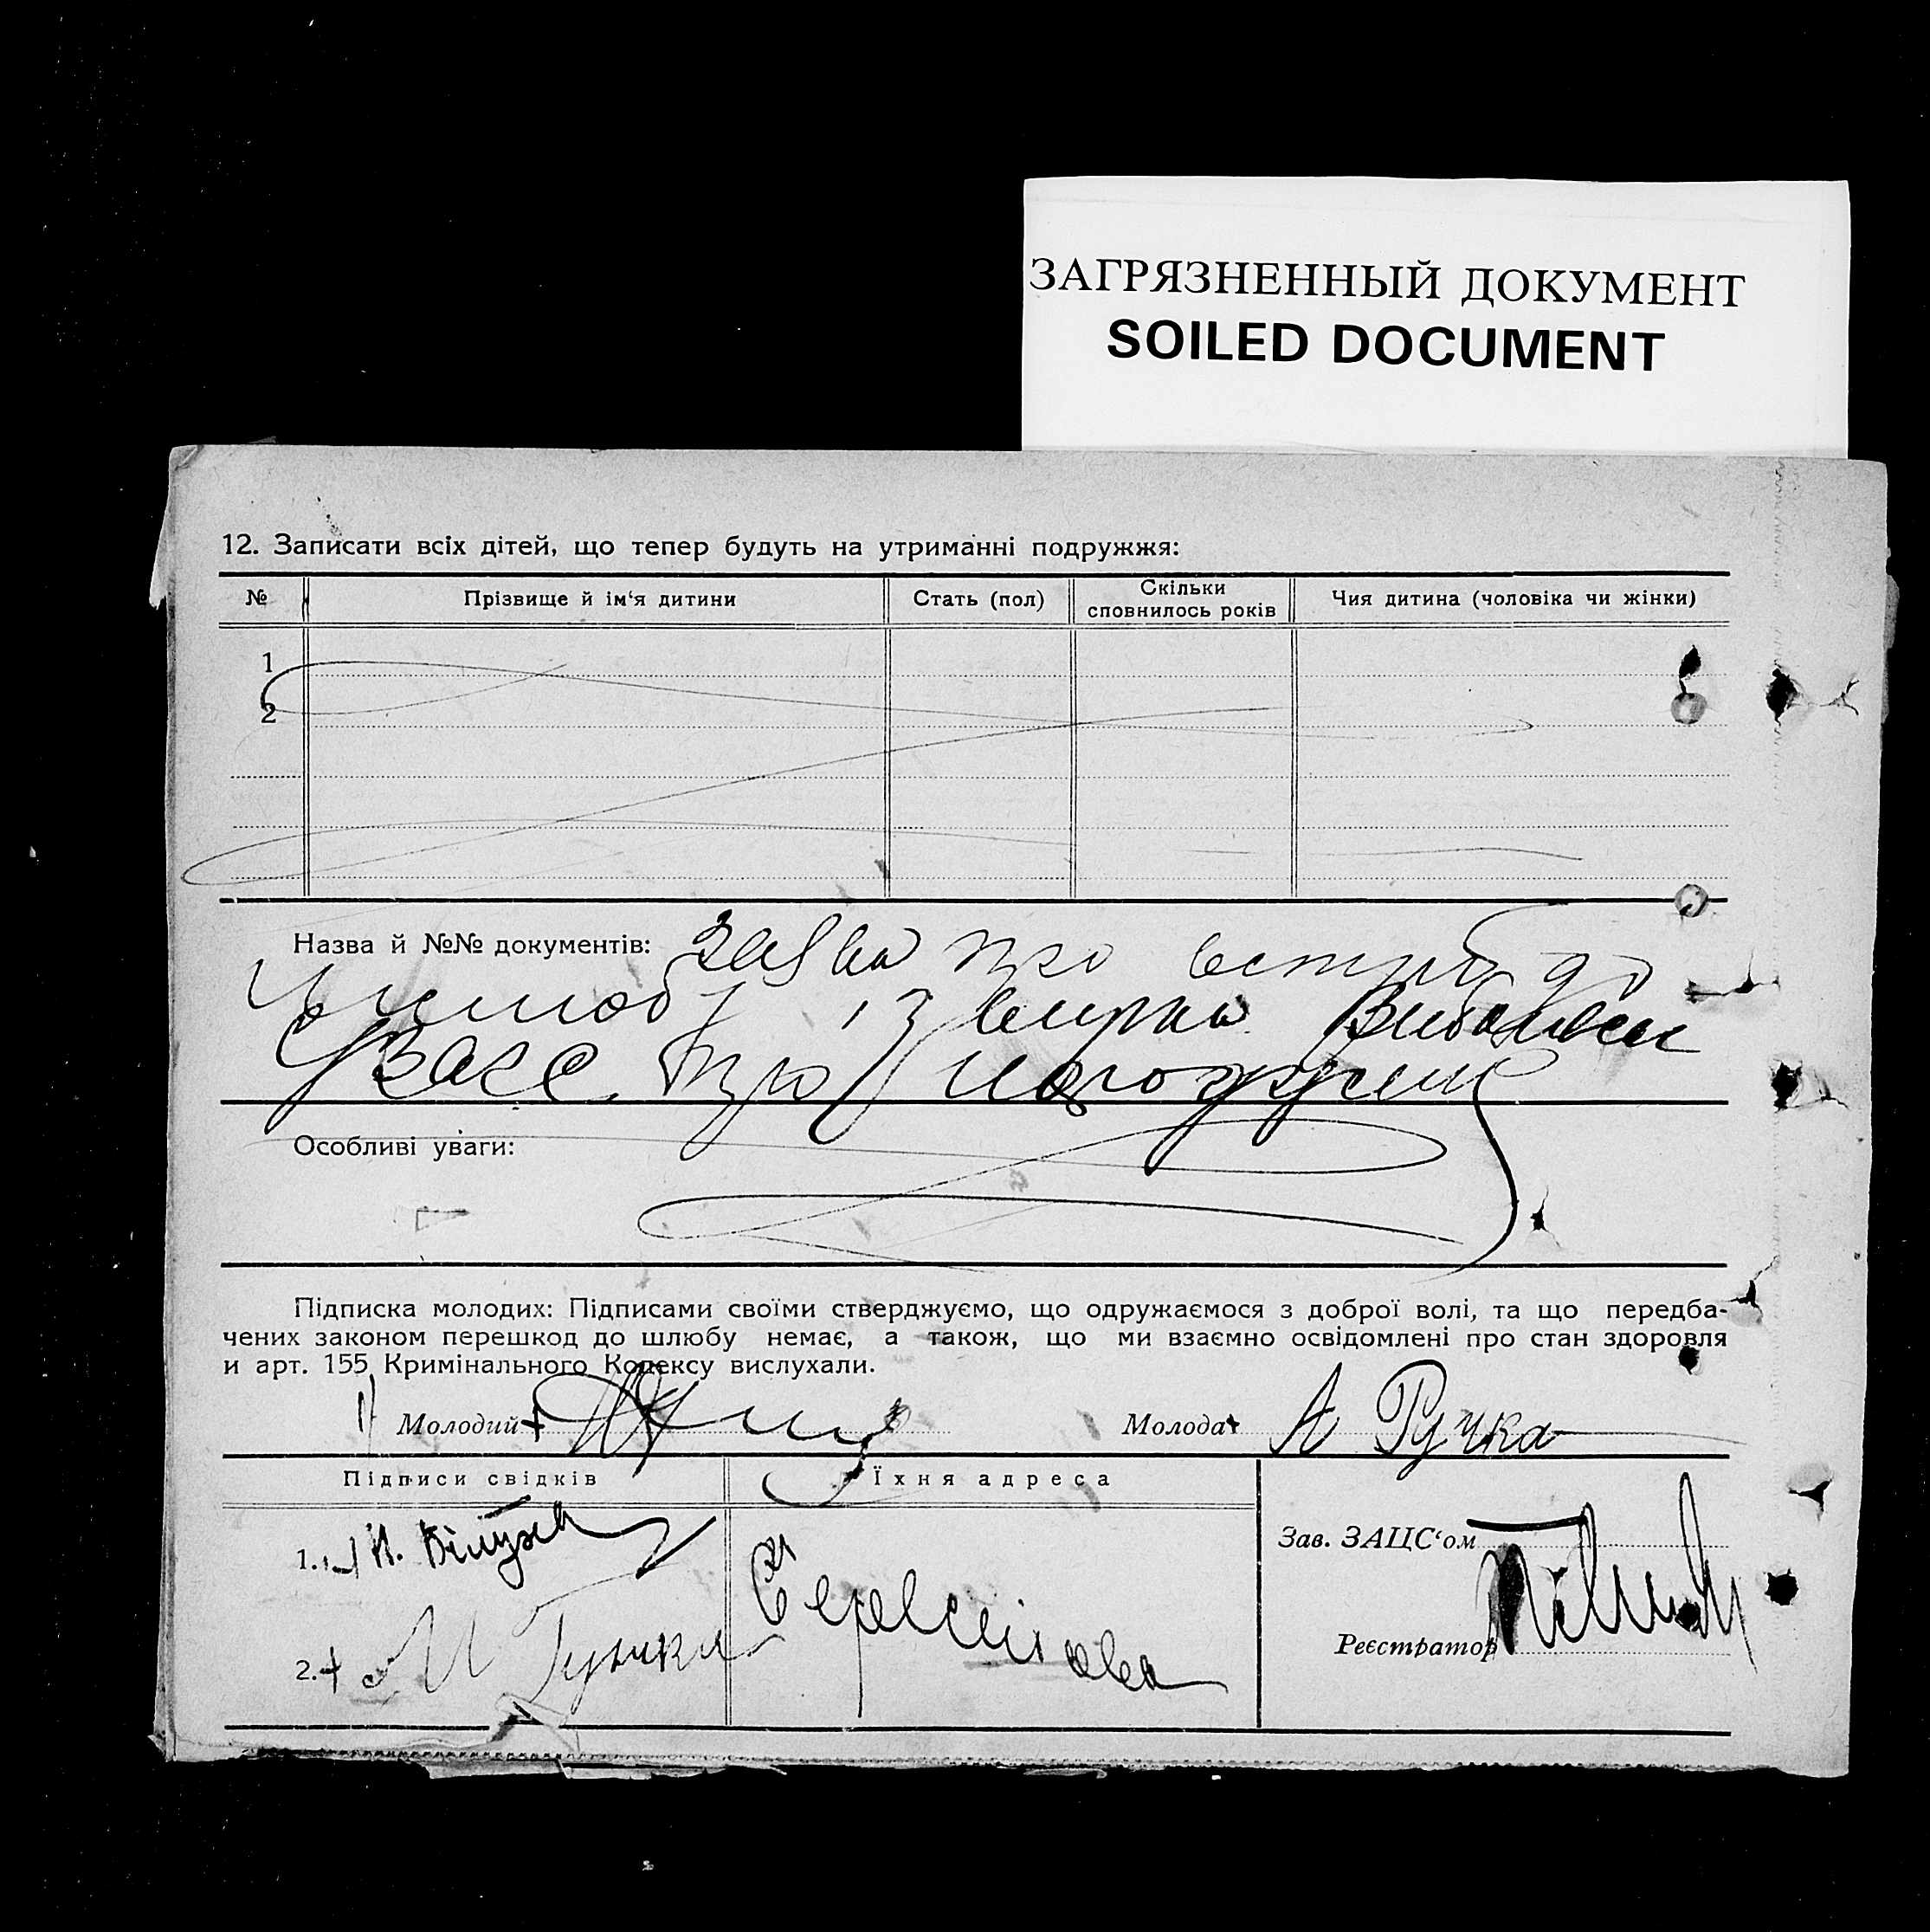 ЗАГРЯЗНЕННЫЙ ДОКУМЕНТ
SOILED DOCUMENT
12. Записати всіх дітей, що тепер будуть на утриманні подружжя:
№ Прізвище й ім‘я дитини Стать (пол) Скільки сповнилось років Чия дитина (чоловіка чи жінки)
1
2
Назва й №№ документів: Заява про вступ до
шлюбу
про
Особливі уваги:
Підписка молодих: Підписами своїми стверджуємо, що одружаємося з доброї волі, та що передба-
чених законом перешкод до шлюбу немає, а також, що ми взаємно освідомлені про стан здоровля
и арт. 155 Кримінального Кодексу вислухали.
Молодий Молода А Ручка
Підписи свідків Їхня адреса
1.
Зав. ЗАЦС‘ом
2.
Реєстратор